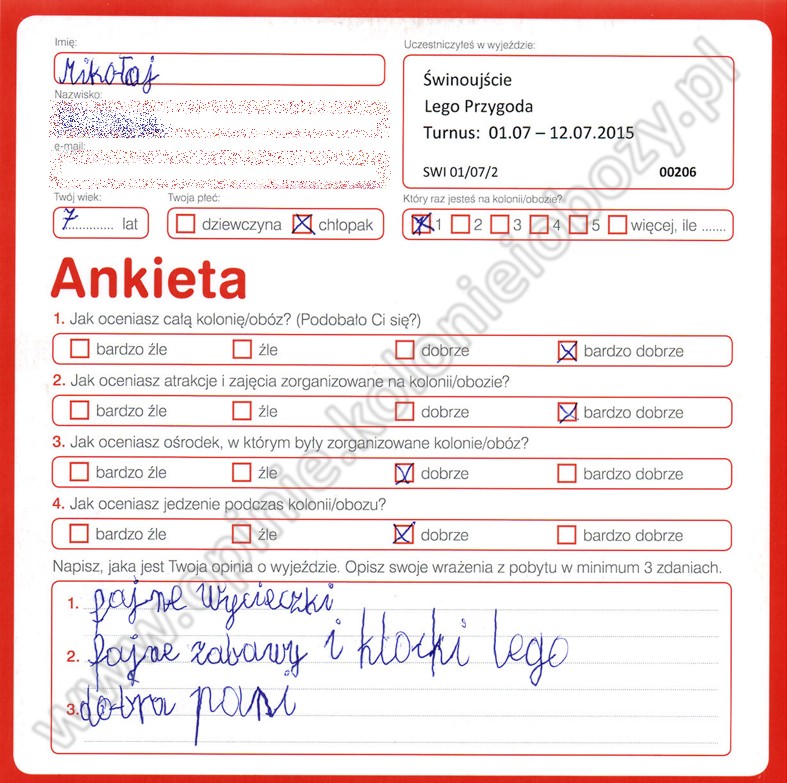 Imię:
Mikołaj
Nazwisko:
e-mail:
Twój wiek:
7 lat
Twoja płeć:
dziewczyna chłopak
Uczestniczyłeś w wyjeździe:
Świnoujście
Lego Przygoda
Turnus: 01.07 – 12.07.2015
SWI 01/07/2 00206
Który raz jesteś na kolonii/obozie?
1 2 3 4 5 więcej, ile .......
Ankieta
1. Jak oceniasz całą kolonię/obóz? (Podobało Ci się?)
bardzo źle źle dobrze bardzo dobrze
2. Jak oceniasz atrakcje i zajęcia zorganizowane na kolonii/obozie?
bardzo źle źle dobrze bardzo dobrze
3. Jak oceniasz ośrodek, w którym były zorganizowane kolonie/obóz?
bardzo źle źle dobrze bardzo dobrze
4. Jak oceniasz jedzenie podczas kolonii/obozu?
bardzo źle źle dobrze bardzo dobrze
Napisz, jaka jest Twoja opinia o wyjeździe. Opisz swoje wrażenia z pobytu w minimum 3 zdaniach.
1. fajne wycieczki
2. fajne zabawy i klocki lego
3. dobra pani
www.opinie.kolonieiobozy.pl